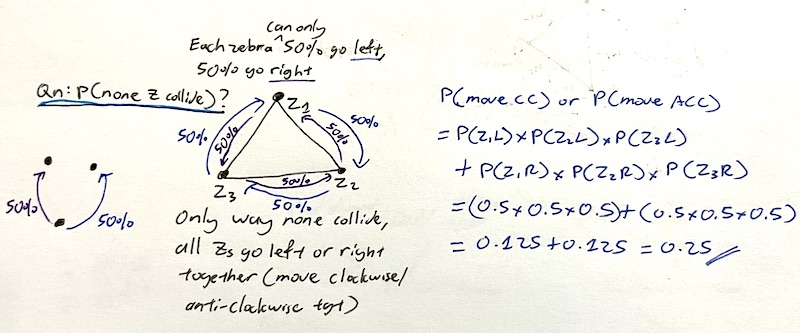 can only
Each zebra ^ 50% go left,
50% go right
Qn: P(none Z collide)?
Z1
50%
50%
50%
50%
Z3
50%
Z2
50%
50%
50%
Only way none collide,
all Zs go left or right
together (move clockwise/
anti-clockwise tgt)
P(move CC) or P(move ACC)
= P(Z1L) × P(Z2L) × P(Z3L)
+ P(Z1R) × P(Z2R) × P(Z3R)
= (0.5 × 0.5 × 0.5) + (0.5 × 0.5 × 0.5)
= 0.125 + 0.125 = 0.25